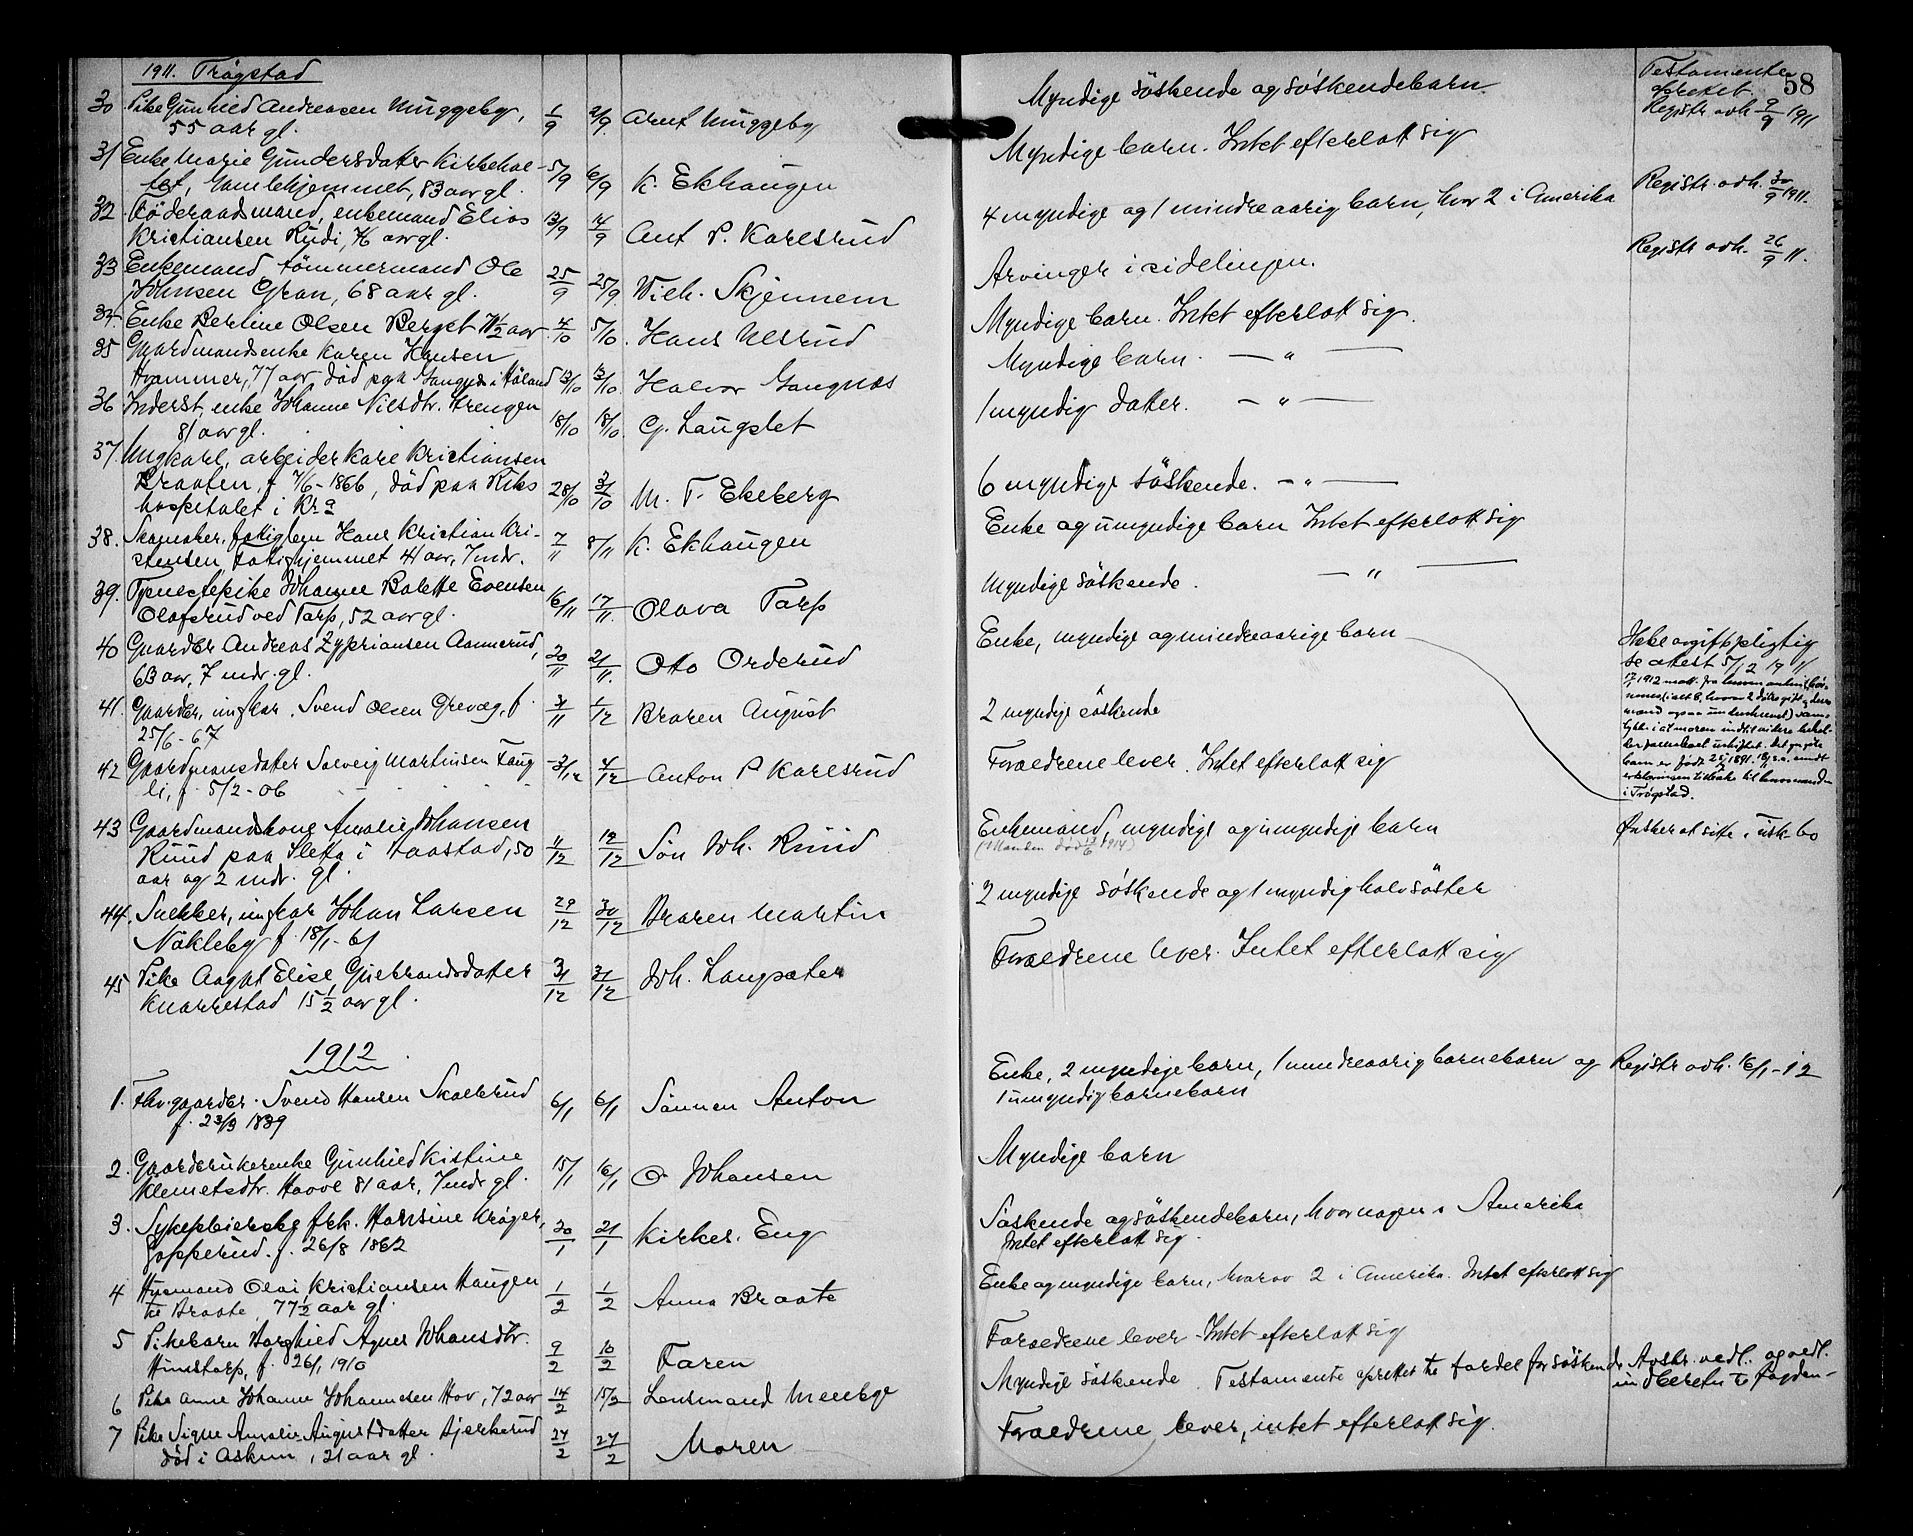 1911. Trøgstad
58
30 Pike Gunhild Andreasen Muggeby,
55 aar gl.
1/9 2/9 Arnt Muggeby
Myndige søskende og søskendebarn
Testamente
oprettet.
Registr. adh 9/9 1911
31 Enke Marie Gundersdatter Kirkehol-
tet, Gamlehjemmet, 83 aar gl.
5/9 6/9 K. Ekhaugen
Myndige barn. Intet efterlatt sig
32. Föderaadsmand, enkemand Elias
Kristiansen Rudi, 76 aar gl.
13/9 14/9 Ant P. Karlsrud
4 myndige og 1 mindreaarig barn, hvor 2 i Amerika
Registr. adh. 30/9 1911.
33 Enkemand, tömmermand Ole
Johnsen Gran, 68 aar gl.
25/9 25/9 Vilh. Skjennem
Arvinger i sidelinjen.
Registr adh. 26/9 11.
34. Enke Bertine Olsen Berget 71 1/2 aar
4/10 5/10. Hans Ulsrud
Myndige barn. Intet efterlatt sig.
35 Gaardmandsenke Karen Hansen
Hrammer, 77 aar död paa Gangnæs i Höland
13/10 13/10. Halvor Gangnæs
Myndige barn. — " —
36 Inderst, enke Johanne Nilsdtr. Strengen
81 aar gl.
18/10 18/10. G. Laugslet
1 myndig datter. — " —
37. Ungkarl, arbeider Kare Kristiansen
Braaten, f 7/6-1866, död paa Riks
hospitalet i Kr.a
28/10 31/10 M. T. Ekeberg
6 myndige söskende. — " —
38. Skomaker, fattiglem Hans Kristian Kri-
stensen, fattighjemmet 41 aar, 7 mdr.
7/11 8/11 K. Ekhaugen
Enke og umyndige barn Intet efterlatt sig
39. Tjenestepike Johanne Bolette Evensen
Olafsrud ved Tarp, 52 aar gl.
16/11 17/11. Olava Tarp
Myndige söskende. — " —
40 Gaardbr Andreas Zypriansen Aamerud,
63 aar, 7 mdr. gl.
20/11 21/11. Otto Orderud
Enke, myndige og mindreaarige barn
Ikke avgiftspligtig
se attest 5/12 1911
i Trøgstad.
41. Gaardbr, ungkar. Svend Olsen Grevæg, f.
25/6-67
1/12 Broren August
2 myndige söskende
42 Gaardmansdatter Solveig Martinsen Fang
li, f. 5/2-06
3/12 4/12 Anton P Karlsrud
Foraeldrene lever. Intet efterlatt sig
43 Gaardmandskone Amalie Johansen
Ruud paa Sletta i Haastad, 50
aar og 2 mdr. gl
11/12 12/12 Sön Joh. Ruud
Enkemand, myndige og umyndige barn
(Manden död 1914)
Ønsker at sitte i uisk. bo
44. Snekker, ungkar Johan Larsen
Nökleby f. 18/1-61
29/12 30/12 Broren Martin
2 myndige söskende og 1 myndig halvsöster
45 Pike Aagot Elise Gulbrandsdatter
Knarrestad 15 1/2 aar gl.
31/12 31/12 Joh. Langsæter
Foraeldrene lever. Intet efterlatt sig
1912.
1. Fhv. gaardbr. Svend Hansen Skalerud
f. 23/3 1839
6/1 6/1 Sönnen Anton
Enke, 2 myndige barn, 1 mindreaarig barnebarn og
1 umyndig barnebarn
Registr adh. 16/1-12
2. Gaardbrukerenke Gunhild Kistine
Klemetsdtr. Haave 81 aar, 7 mdr gl.
15/1 16/1 O Johansen
Myndige barn
3. Sykepleierske frk. Hansine Kröger,
Gopperud. f. 26/8 1862
20/1 21/1 Kirkes. Eng
Söskende og söskendebarn, hvorav nogen i Amerika
Intet efterlatt sig.
4 Husmand Olai Kristiansen Haugen
til Braate 77 1/2 aar gl.
1/2 1/2 Anna Braate
Enke og myndige barn, hvorav 2 i Amerika. Intet efterlatt sig
5 Pikebarn Borghild Agnes Johansdtr.
Hunstorp, f. 26/1 1910
9/2 10/2 Faren
Foraeldrene lever - Intet efterlatt sig
6 Pike Anne Johanne Johannesen Hov, 72 aar
14/2 15/2 Lensmand Menkge
Myndige söskende. Testamente oprettet til fordel for söskende
Avskr. vedl. og vedl.
7 Pike Signe Amalie Augustdatter Bjerkerud
död i Askim, 21 aar gl.
27/2 27/2 Moren
Foraeldrene lever, intet efterlatt sig.